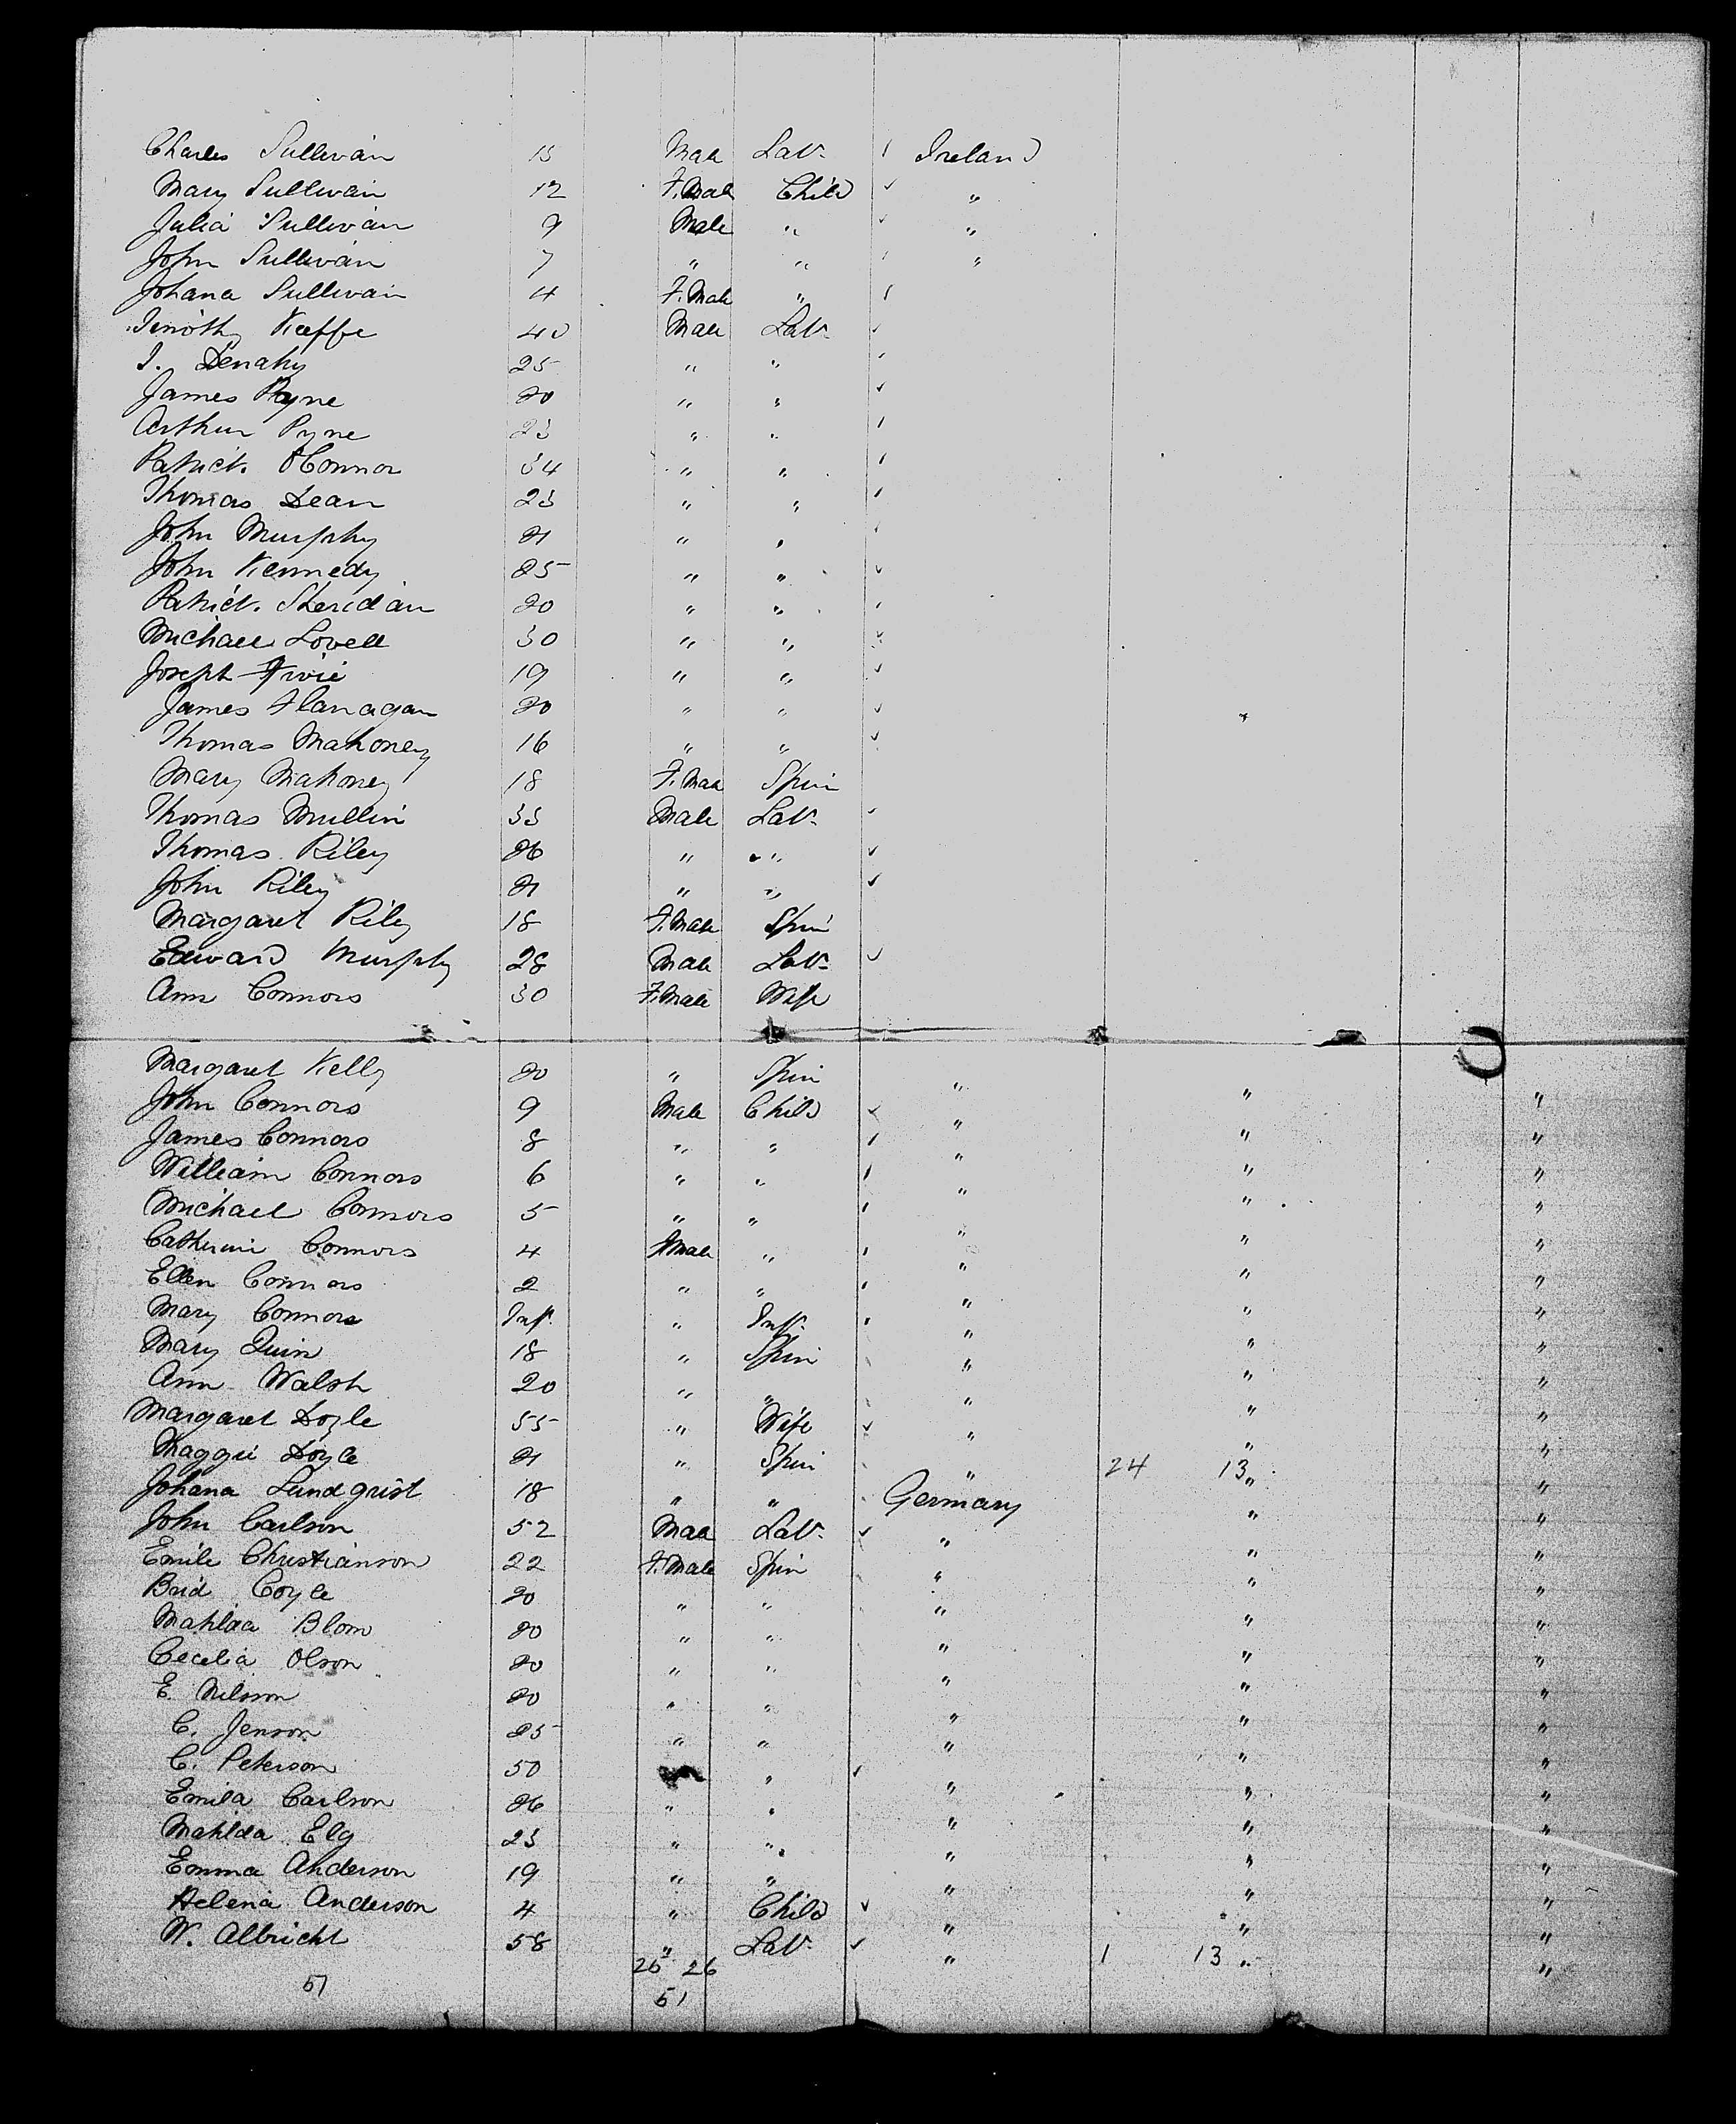 Charles Sullivan 13 Male Lab. Ireland
Mary Sullivan 12 F.Male Child "
Julia Sullivan 9 Male " "
John Sullivan 7 " " "
Johana Sullivan 4 F.Male "
Timothy Keffe 40 Male Lab.
J. Denahy 25 " "
James Pyne 20 " "
Arthur Pyne 23 " "
Patrick OConnor 34 " "
Thomas Dean 23 " "
John Murphy 21 " "
John Kennedy 25 " "
Patrick Sheridan 20 " "
Michael Lovell 30 " "
Joseph 19 " "
James Flanagan 20 " "
Thomas Mahoney 16 " "
Mary Mahoney 18 F.Male Spin
Thomas Mullin 33 Male Lab.
Thomas Riley 26 " "
John Riley 21 " "
Margaret Riley 18 F.Male Spin
Edward Murphy 28 Male Lab.
Ann Connors 30 F.Male Wife
Margaret Kelly 20 " Spin " " "
John Connors 9 Male Child " " "
James Connors 8 " " " " "
William Connors 6 " " " " "
Michael Connors 5 " " " " "
Catherine Connors 4 Fmale " " " "
Ellen Connors 2 " " " " "
Mary Connors Inf. " Inf. " " "
Mary Quin 18 " Spin " " "
Ann Walsh 20 " " " " "
Margaret Doyle 55 " Wife " " "
Maggie Doyle 21 " Spin " 24 13 " "
Johana Lundgrist 18 " " Germany " "
John Carlson 52 Male Lab. " " "
Emile Christianson 22 F.Male Spin " " "
Brid Coyle 20 " " " " "
Mahlda Blom 20 " " " " "
Cecelia Olson 20 " " " " "
E. Nilsson 20 " " " " "
C. Jenson 25 " " " " "
C. Peterson 50 " " " "
Emila Carlson 26 " " " " "
Mahlda Elg 23 " " " " "
Emma Anderson 19 " " " " "
Helena Anderson 4 " Child " " "
W. Albricht 58 " Lab. " 1 13 " "
25 26
51 51